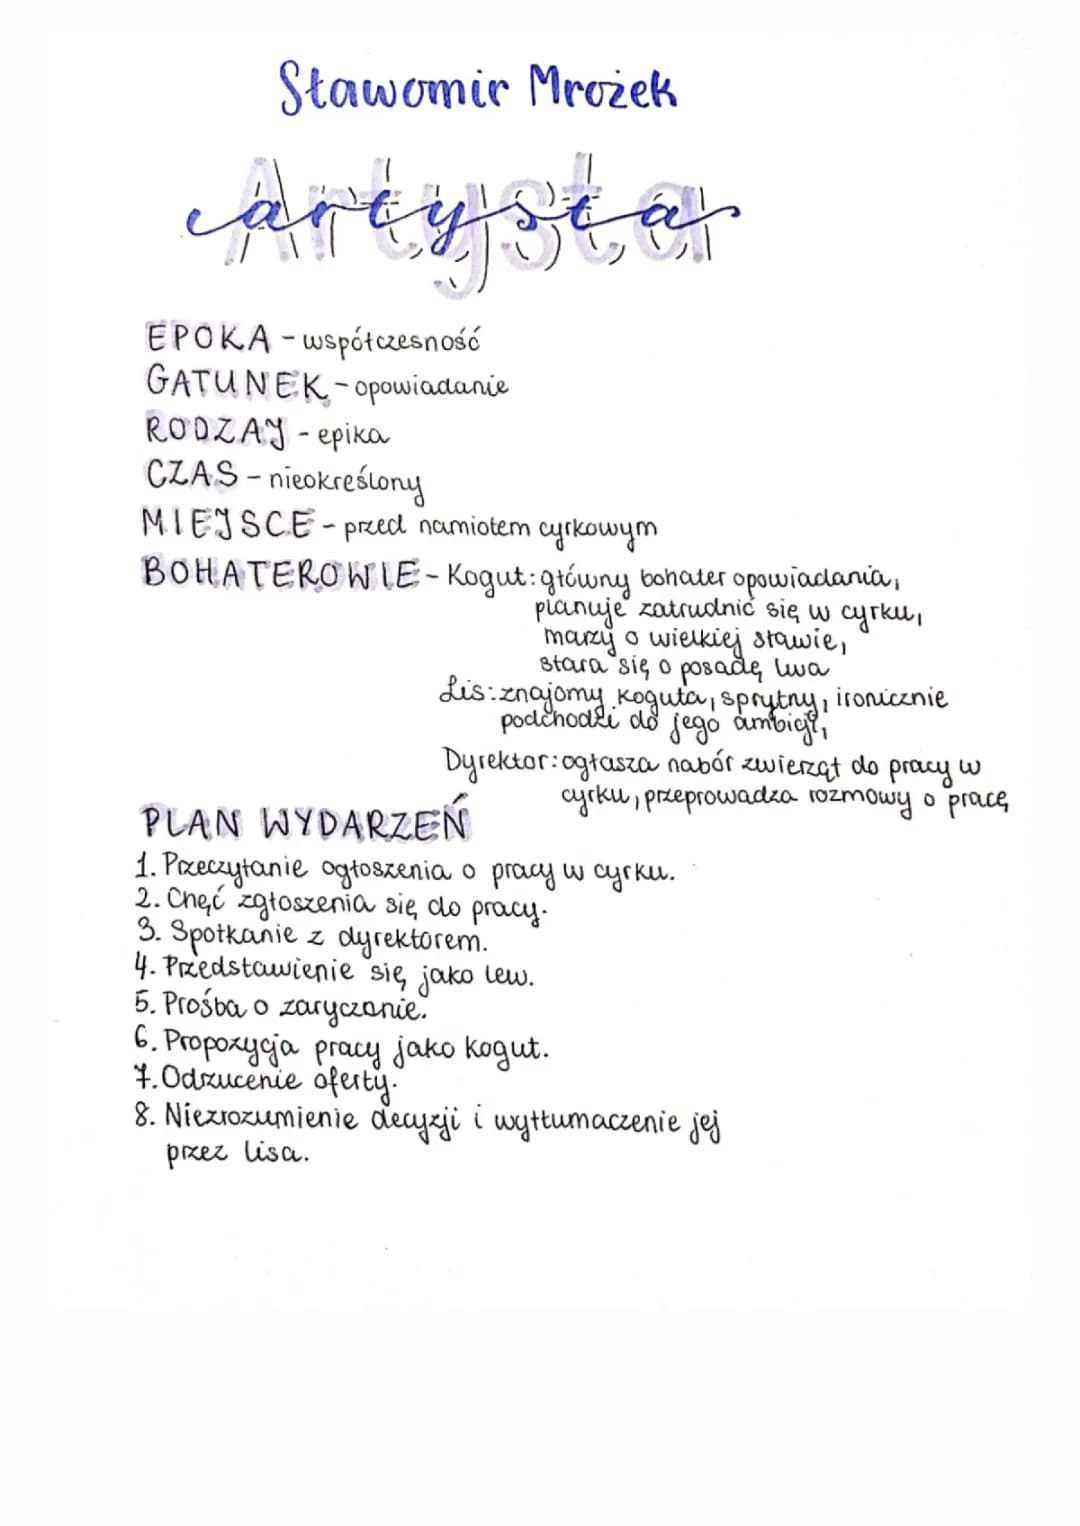 Sławomir Mrożek
Artysta
EPOKA - współczesność
GATUNEK - opowiadanie
RODZAJ - epika
CZAS - nieokreślony
MIEJSCE - przed namiotem cyrkowym
BOHATEROWIE - Kogut: główny bohater opowiadania,
planuje zatrudnić się w cyrku,
marzy o wielkiej sławie,
stara się o posadę lwa
Lis: znajomy koguta, sprytny, ironicznie
podchodzi do jego ambicji,
Dyrektor: ogłasza nabór zwierząt do pracy w
cyrku, przeprowadza rozmowy o pracę
PLAN WYDARZEŃ
1. Przeczytanie ogłoszenia o pracy w cyrku.
2. Chęć zgłoszenia się do pracy.
3. Spotkanie z dyrektorem.
4. Przedstawienie się jako lew.
5. Prośba o zaryczanie.
6. Propozycja pracy jako kogut.
7. Odrzucenie oferty.
8. Niezrozumienie decyzji i wytłumaczenie jej
przez lisa.